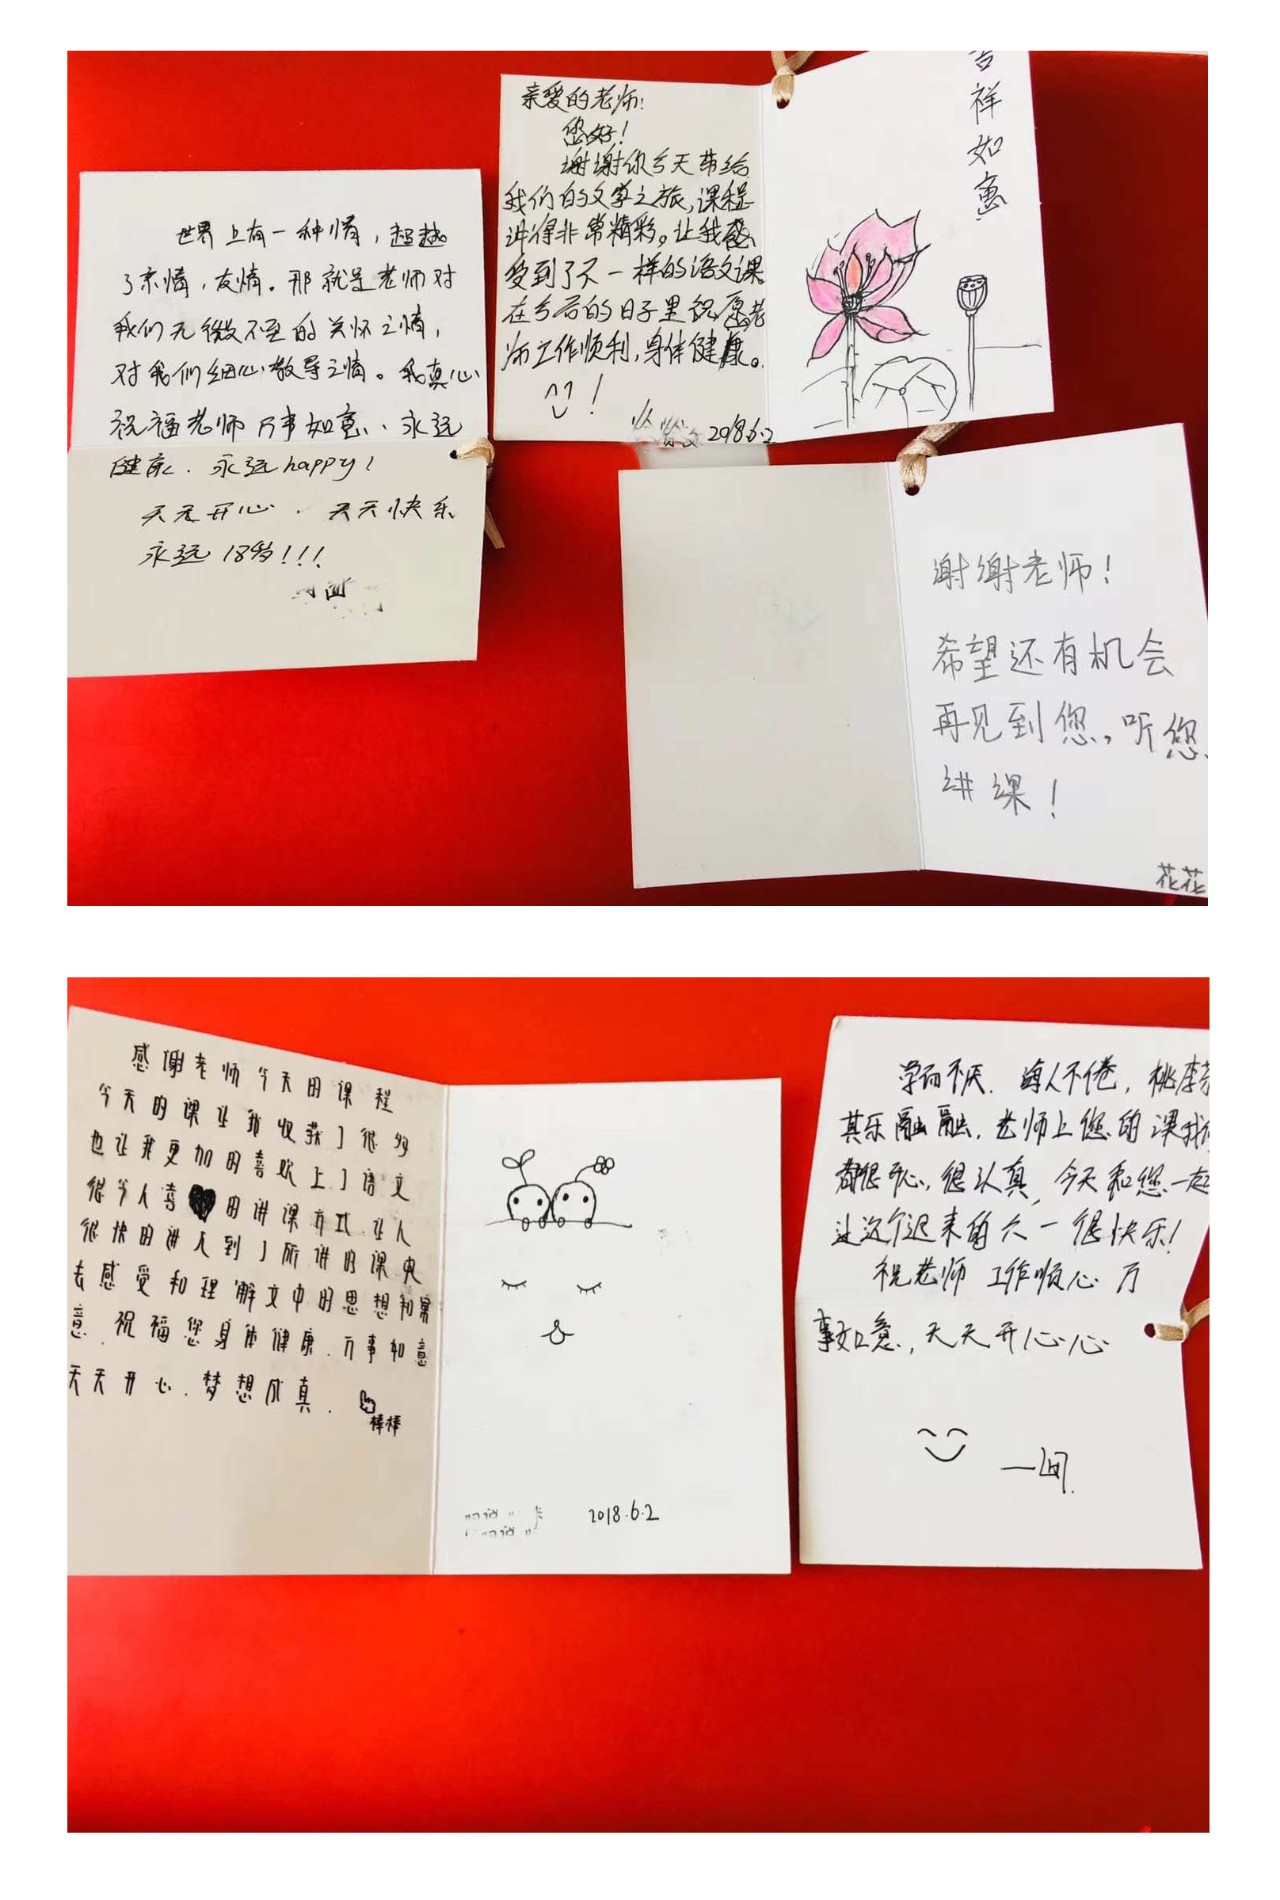 世界上有一种情，超越
了亲情，友情。那就是老师对
我们无微不至的关怀之情，
对我们细心教导之情。我真心
祝福老师万事如意、永远
健康、永远happy！
天天开心、天天快乐
永远18岁！！！
亲爱的老师：
您好！
谢谢你今天带给
我们的文学之旅，课程
讲得非常精彩。让我感
受到了不一样的语文课
在今后的日子里祝愿老
师工作顺利，身体健康。
！
2018.6.2
吉祥如意
谢谢老师！
希望还有机会
再见到您，听您
讲课！
花花
感谢老师今天的课程
今天的课让我收获了很多
也让我更加的喜欢上了语文
很令人喜的讲课方式.让人
很快的进入到了所讲的课中
去感受和理解文中的思想和寓
意.祝福您身体健康.万事如意
天天开心.梦想成真.
棒棒
2018.6.2
学而不厌.诲人不倦，桃李芬
其乐融融，老师上您的课我们
都很开心，很认真，今天和您一起
过这个迟来的六一很快乐！
祝老师 工作顺心 万
事如意，天天开心心
一间.